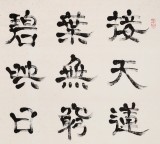 接天蓮
葉無窮
碧映日